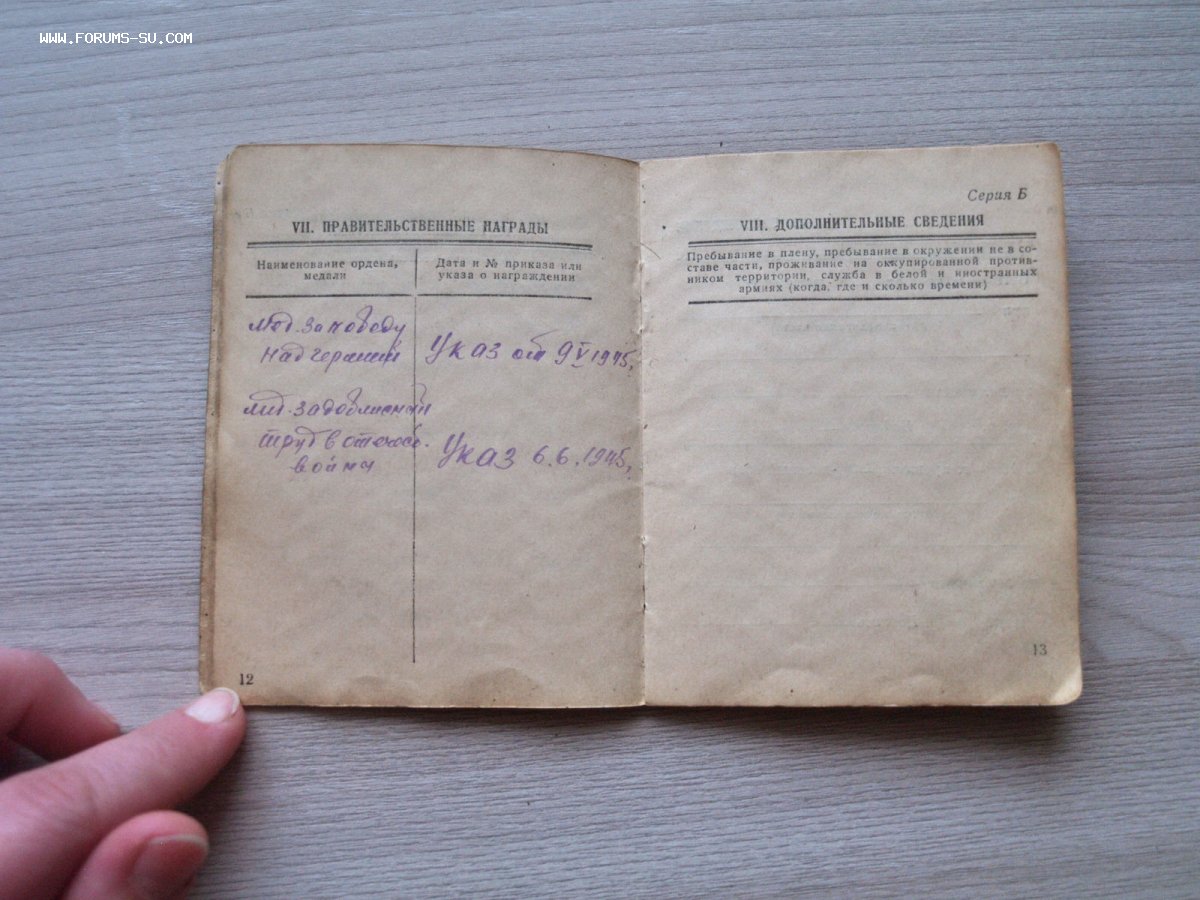 WWW.FORUMS-SU.COM
VII. ПРАВИТЕЛЬСТВЕННЫЕ НАГРАДЫ
Наименование ордена, медали
Дата и № приказа или указа о награждении
мед. За победу
над германией
Указ от 9 V 1945,
мед. За доблестный
труд в отечест.
война
Указ 6.6.1945,
12
Серия Б
VIII. ДОПОЛНИТЕЛЬНЫЕ СВЕДЕНИЯ
Пребывание в плену, пребывание в окружении не в со-
ставе части, проживание на оккупированной против-
ником территории, служба в белой и иностранных
армиях (когда, где и сколько времени)
13